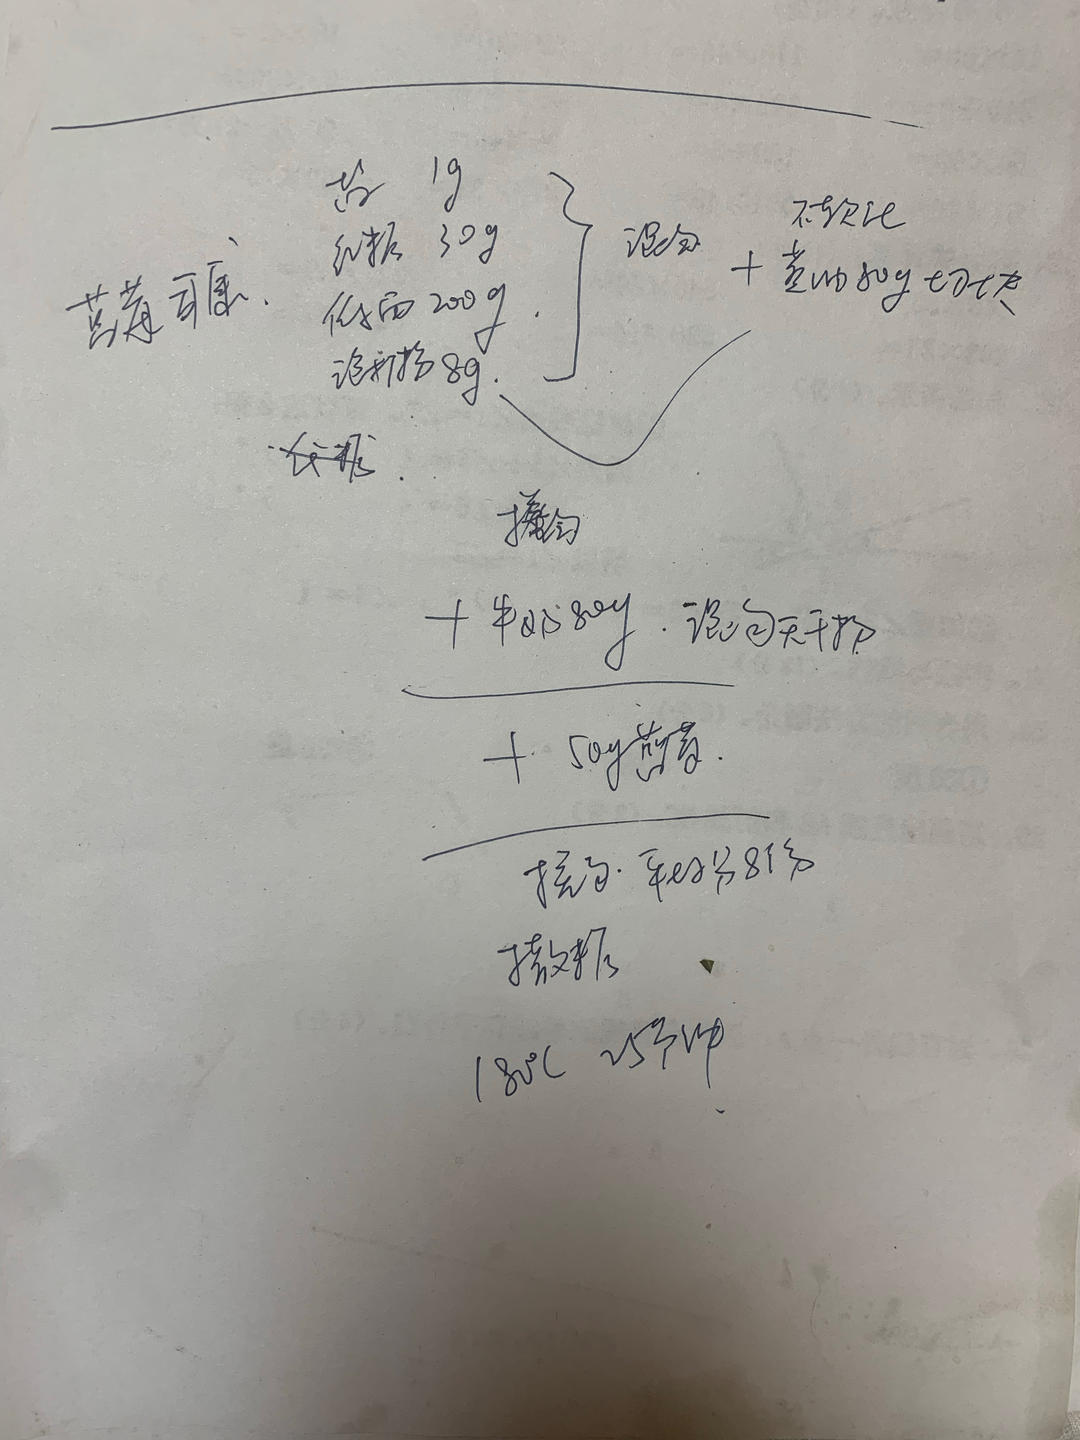 蓝莓司康.
盐 1g
红糖 30g
低面 200g.
泡打粉 8g.
混匀
不软化
+ 黄油 80g 切块
搓匀
+ 牛奶 80g. 混匀无干粉
+ 50g 蓝莓.
揉匀. 平均分8份
撒糖
180℃ 25分钟